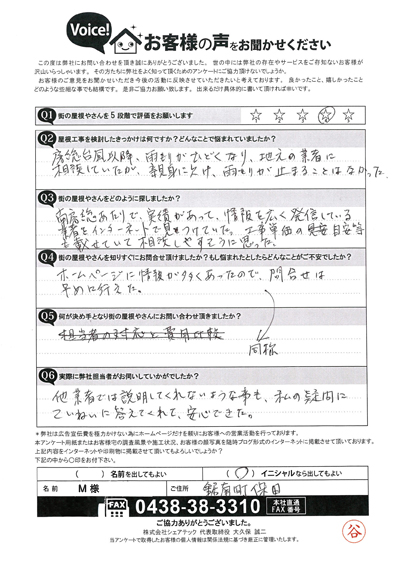 Voice!
お客様の声をお聞かせください
この度は弊社にお問い合わせを頂き誠にありがとうございました。世の中には弊社の存在やサービスをご存知ないお客様が
沢山いらっしゃいます。その方たちに弊社をよく知って頂くためのアンケートにご協力頂けないでしょうか。
お客様のご意見をお聞かせいただき今後の活動に反映させていただきたいと考えております。良かったこと、嬉しかったこと
どのような些細な事でも結構です。是非ご協力お願い致します。出来るだけ具体的に書いて頂ければ幸いです。
Q1 街の屋根やさんを5段階で評価をお願いします
Q2 屋根工事を検討したきっかけは何ですか？どんなことで悩まれていましたか？
房総台風以降、雨もりがひどくなり、地元の業者に
相談していたが、親身に欠け、雨もりが止まることはなかった。
Q3 街の屋根やさんをどのように探しましたか？
南房総あたりで、実績があって、情報を広く発信している
業者をインターネットで見つけていた。工事単価の目安等
も載せていて相談しやすそうに思った。
Q4 街の屋根やさんを知りすぐにお問合せ頂けましたか？もし悩まれたとしたらどんなことがご不安でしたか？
ホームページに情報が多くあったので、問合せは
早めに行えた。
Q5 何が決め手となり街の屋根やさんにお問い合わせ頂きましたか？
担当者の対応と費用比較
同様
Q6 実際に弊社担当者がお伺いしていかがでしたか？
他業者では説明してくれないような事も、私の疑問に
ていねいに答えてくれて、安心できた。
※弊社は広告宣伝費を極力かけない為にホームページだけを頼りにお客様への営業活動を行っております。
本アンケート用紙またはお客様宅の調査風景や施工状況、お客様の顔写真を随時ブログ形式のインターネットに掲載させて頂いております。
上記内容をインターネットや印刷物に掲載させて頂いてもよろしいでしょうか？
下記の中から〇印をお付け下さい。
（ ）名前を出してもよい （〇）イニシャルなら出してもよい
名前 M様 ご住所 鋸南町保田
FAX 0438-38-3310 本社直通 FAX番号
ご協力ありがとうございました。
株式会社シェアテック 代表取締役 大久保 誠二
当アンケートで取得したお客様の個人情報は関係法規に基づき厳正に管理いたします。
谷